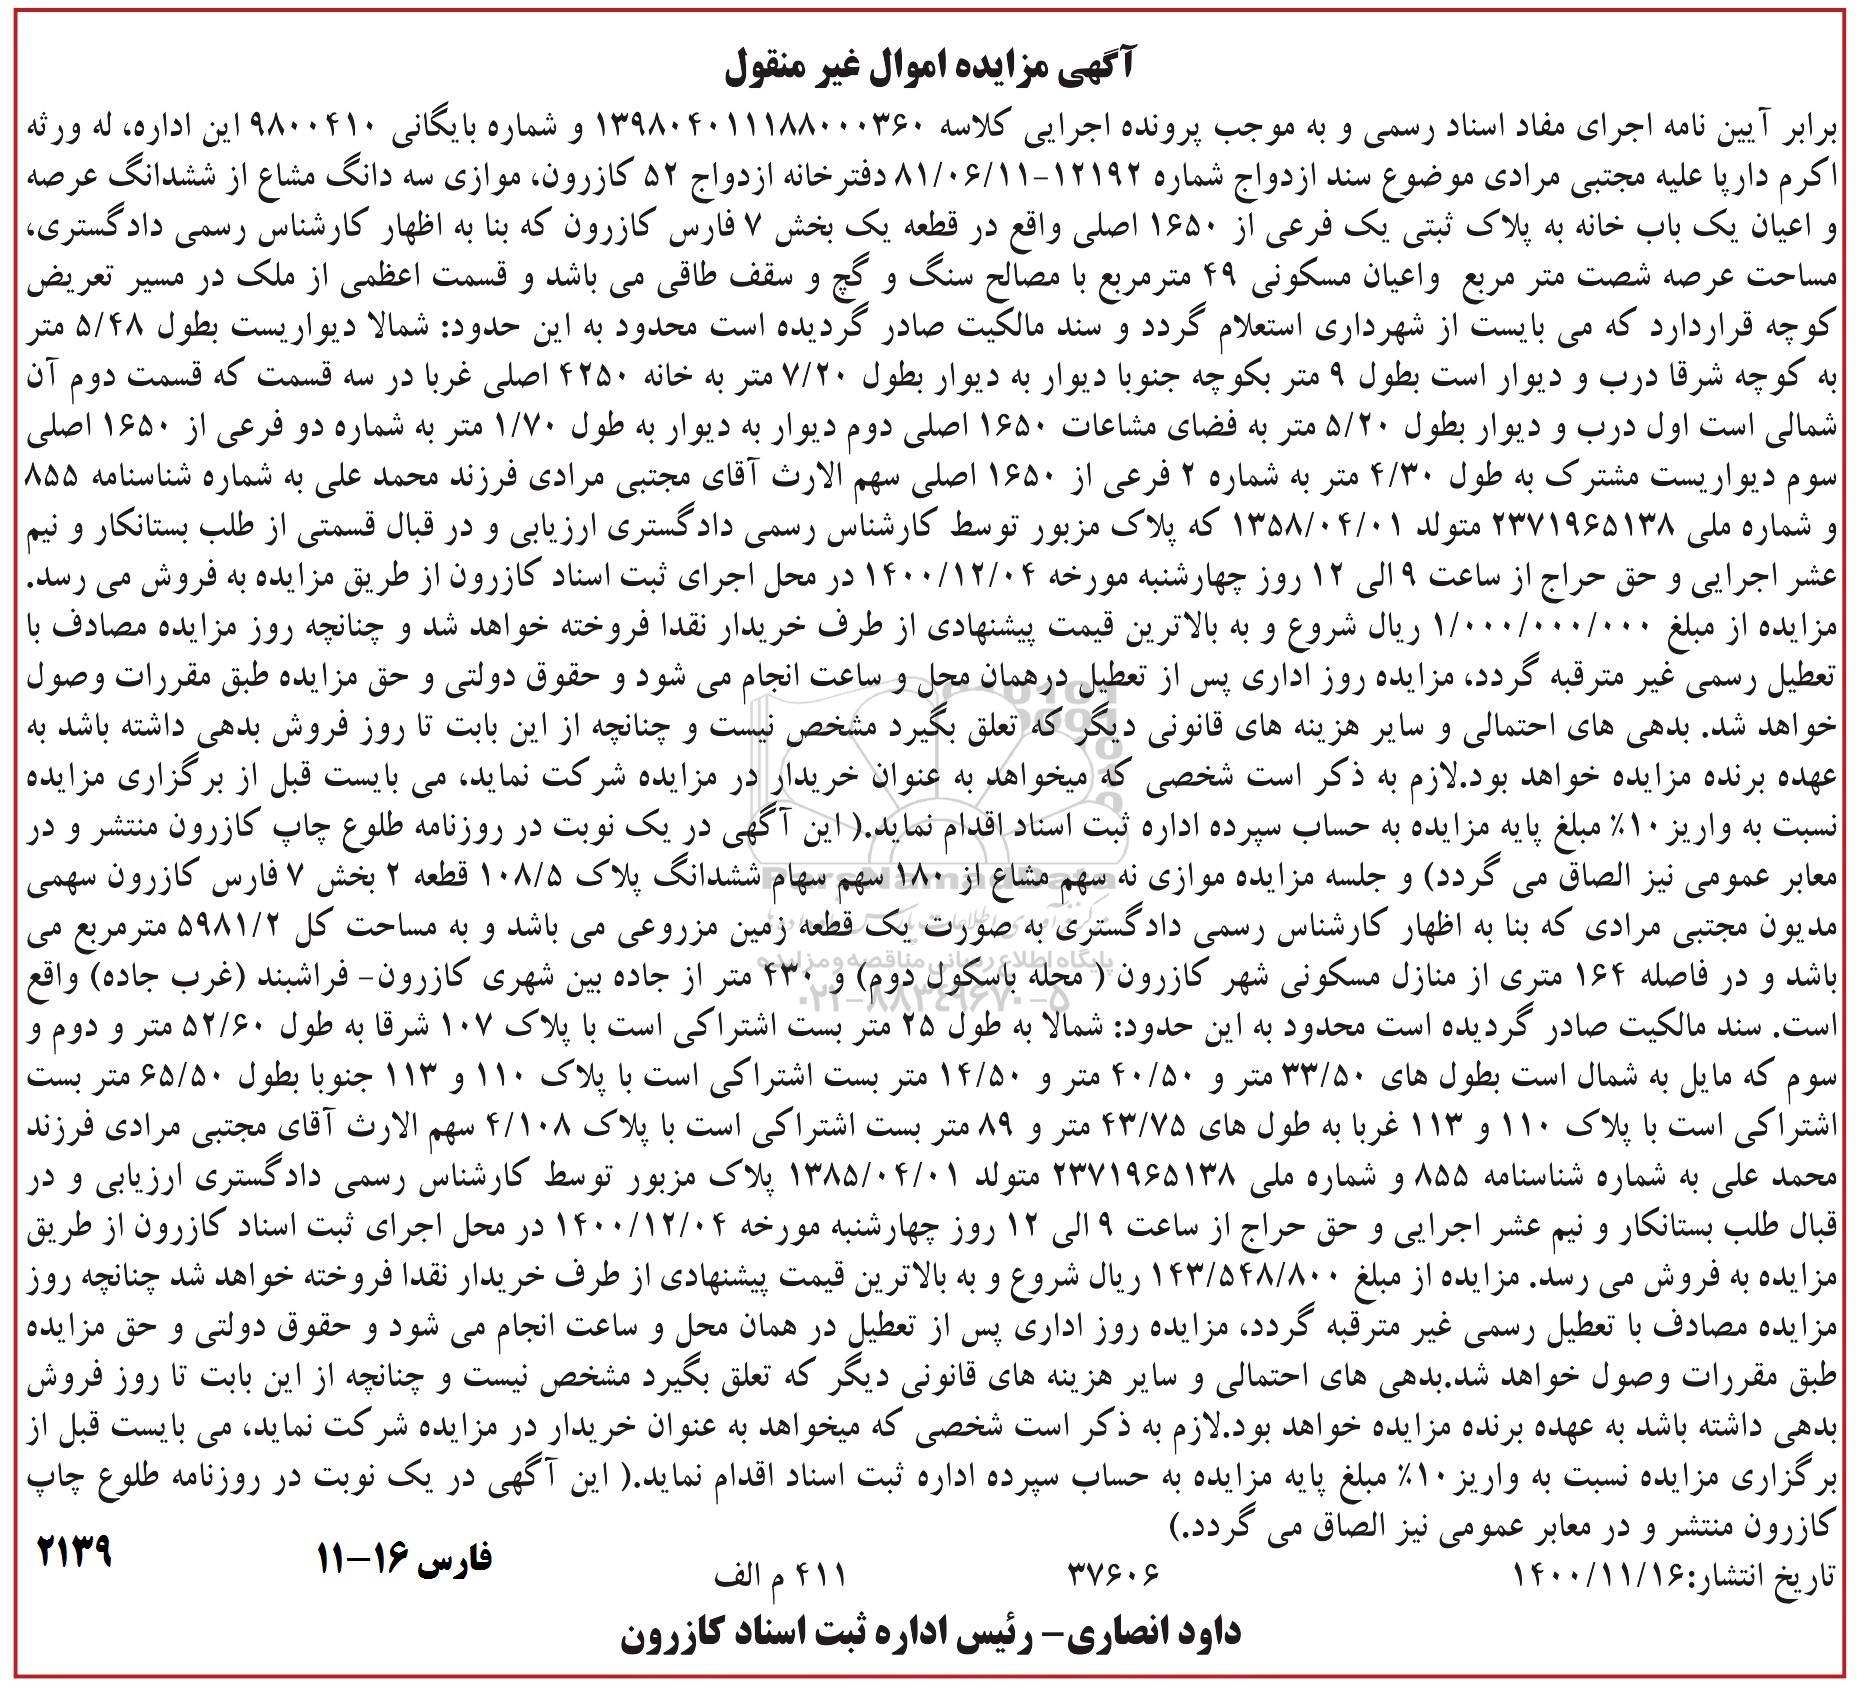 آگهی مزایده اموال غیر منقول
برابر آیین نامه اجرای مفاد اسناد رسمی و به موجب پرونده اجرایی کلاسه ۱۳۹۸۰۴۰۱۱۱۸۸۰۰۰۳۶۰ و شماره بایگانی ۹۸۰۰۴۱۰ این اداره، له ورثه
اکرم دارپا علیه مجتبی مرادی موضوع سند ازدواج شماره ۱۲۱۹۲-۸۱/۰۶/۱۱ دفترخانه ازدواج ۵۲ کازرون، موازی سه دانگ مشاع از ششدانگ عرصه
و اعیان یک باب خانه به پلاک ثبتی یک فرعی از ۱۶۵۰ اصلی واقع در قطعه یک بخش ۷ فارس کازرون که بنا به اظهار کارشناس رسمی دادگستری،
مساحت عرصه شصت متر مربع واعیان مسکونی ۴۹ مترمربع با مصالح سنگ و گچ و سقف طاقی می باشد و قسمت اعظمی از ملک در مسیر تعریض
کوچه قراردارد که می بایست از شهرداری استعلام گردد و سند مالکیت صادر گردیده است محدود به این حدود: شمالا دیواریست بطول ۵/۴۸ متر
به کوچه شرقا درب و دیوار است بطول ۹ متر بکوچه جنوبا دیوار به دیوار بطول ۷/۲۰ متر به خانه ۴۲۵۰ اصلی غربا در سه قسمت که قسمت دوم آن
شمالی است اول درب و دیوار بطول ۵/۲۰ متر به فضای مشاعات ۱۶۵۰ اصلی دوم دیوار به دیوار به طول ۱/۷۰ متر به شماره دو فرعی از ۱۶۵۰ اصلی
سوم دیواریست مشترک به طول ۴/۳۰ متر به شماره ۲ فرعی از ۱۶۵۰ اصلی سهم الارث آقای مجتبی مرادی فرزند محمد علی به شماره شناسنامه ۸۵۵
و شماره ملی ۲۳۷۱۹۶۵۱۳۸ متولد ۱۳۵۸/۰۴/۰۱ که پلاک مزبور توسط کارشناس رسمی دادگستری ارزیابی و در قبال قسمتی از طلب بستانکار و نیم
عشر اجرایی و حق حراج از ساعت ۹ الی ۱۲ روز چهارشنبه مورخه ۱۴۰۰/۱۲/۰۴ در محل اجرای ثبت اسناد کازرون از طریق مزایده به فروش می رسد.
مزایده از مبلغ ۱/۰۰۰/۰۰۰/۰۰۰ ریال شروع و به بالاترین قیمت پیشنهادی از طرف خریدار نقدا فروخته خواهد شد و چنانچه روز مزایده مصادف با
تعطیل رسمی غیر مترقبه گردد، مزایده روز اداری پس از تعطیل درهمان محل و ساعت انجام می شود و حقوق دولتی و حق مزایده طبق مقررات وصول
خواهد شد. بدهی های احتمالی و سایر هزینه های قانونی دیگر که تعلق بگیرد مشخص نیست و چنانچه از این بابت تا روز فروش بدهی داشته باشد به
عهده برنده مزایده خواهد بود.لازم به ذکر است شخصی که میخواهد به عنوان خریدار در مزایده شرکت نماید، می بایست قبل از برگزاری مزایده
نسبت به واریز ۱۰٪ مبلغ پایه مزایده به حساب سپرده اداره ثبت اسناد اقدام نماید.( این آگهی در یک نوبت در روزنامه طلوع چاپ کازرون منتشر و در
معابر عمومی نیز الصاق می گردد) و جلسه مزایده موازی نه سهم مشاع از ۱۸۰ سهم سهام ششدانگ پلاک ۱۰۸/۵ قطعه ۲ بخش ۷ فارس کازرون سهمی
مدیون مجتبی مرادی که بنا به اظهار کارشناس رسمی دادگستری به صورت یک قطعه زمین مزروعی می باشد و به مساحت کل ۵۹۸۱/۲ مترمربع می
باشد و در فاصله ۱۶۴ متری از منازل مسکونی شهر کازرون ( محله باسکول دوم) و ۴۳۰ متر از جاده بین شهری کازرون- فراشبند (غرب جاده) واقع
است. سند مالکیت صادر گردیده است محدود به این حدود: شمالا به طول ۲۵ متر بست اشتراکی است با پلاک ۱۰۷ شرقا به طول ۵۲/۶۰ متر و دوم و
سوم که مایل به شمال است بطول های ۳۳/۵۰ متر و ۴۰/۵۰ متر و ۱۴/۵۰ متر بست اشتراکی است با پلاک ۱۱۰ و ۱۱۳ جنوبا بطول ۶۵/۵۰ متر بست
اشتراکی است با پلاک ۱۱۰ و ۱۱۳ غربا به طول های ۴۳/۷۵ متر و ۸۹ متر بست اشتراکی است با پلاک ۴/۱۰۸ سهم الارث آقای مجتبی مرادی فرزند
محمد علی به شماره شناسنامه ۸۵۵ و شماره ملی ۲۳۷۱۹۶۵۱۳۸ متولد ۱۳۸۵/۰۴/۰۱ پلاک مزبور توسط کارشناس رسمی دادگستری ارزیابی و در
قبال طلب بستانکار و نیم عشر اجرایی و حق حراج از ساعت ۹ الی ۱۲ روز چهارشنبه مورخه ۱۴۰۰/۱۲/۰۴ در محل اجرای ثبت اسناد کازرون از طریق
مزایده به فروش می رسد. مزایده از مبلغ ۱۴۳/۵۴۸/۸۰۰ ریال شروع و به بالاترین قیمت پیشنهادی از طرف خریدار نقدا فروخته خواهد شد چنانچه روز
مزایده مصادف با تعطیل رسمی غیر مترقبه گردد، مزایده روز اداری پس از تعطیل در همان محل و ساعت انجام می شود و حقوق دولتی و حق مزایده
طبق مقررات وصول خواهد شد.بدهی های احتمالی و سایر هزینه های قانونی دیگر که تعلق بگیرد مشخص نیست و چنانچه از این بابت تا روز فروش
بدهی داشته باشد به عهده برنده مزایده خواهد بود.لازم به ذکر است شخصی که میخواهد به عنوان خریدار در مزایده شرکت نماید، می بایست قبل از
برگزاری مزایده نسبت به واریز ۱۰٪ مبلغ پایه مزایده به حساب سپرده اداره ثبت اسناد اقدام نماید.( این آگهی در یک نوبت در روزنامه طلوع چاپ
کازرون منتشر و در معابر عمومی نیز الصاق می گردد.)
فارس ۱۶-۱۱ ۲۱۳۹
تاریخ انتشار:۱۴۰۰/۱۱/۱۶ ۳۷۶۰۶ ۴۱۱ م الف
داود انصاری- رئیس اداره ثبت اسناد کازرون
پایگاه اطلاع رسانی مناقصه و مزایده
۰۲۱-۸۸۳۴۹۶۷۰-۵